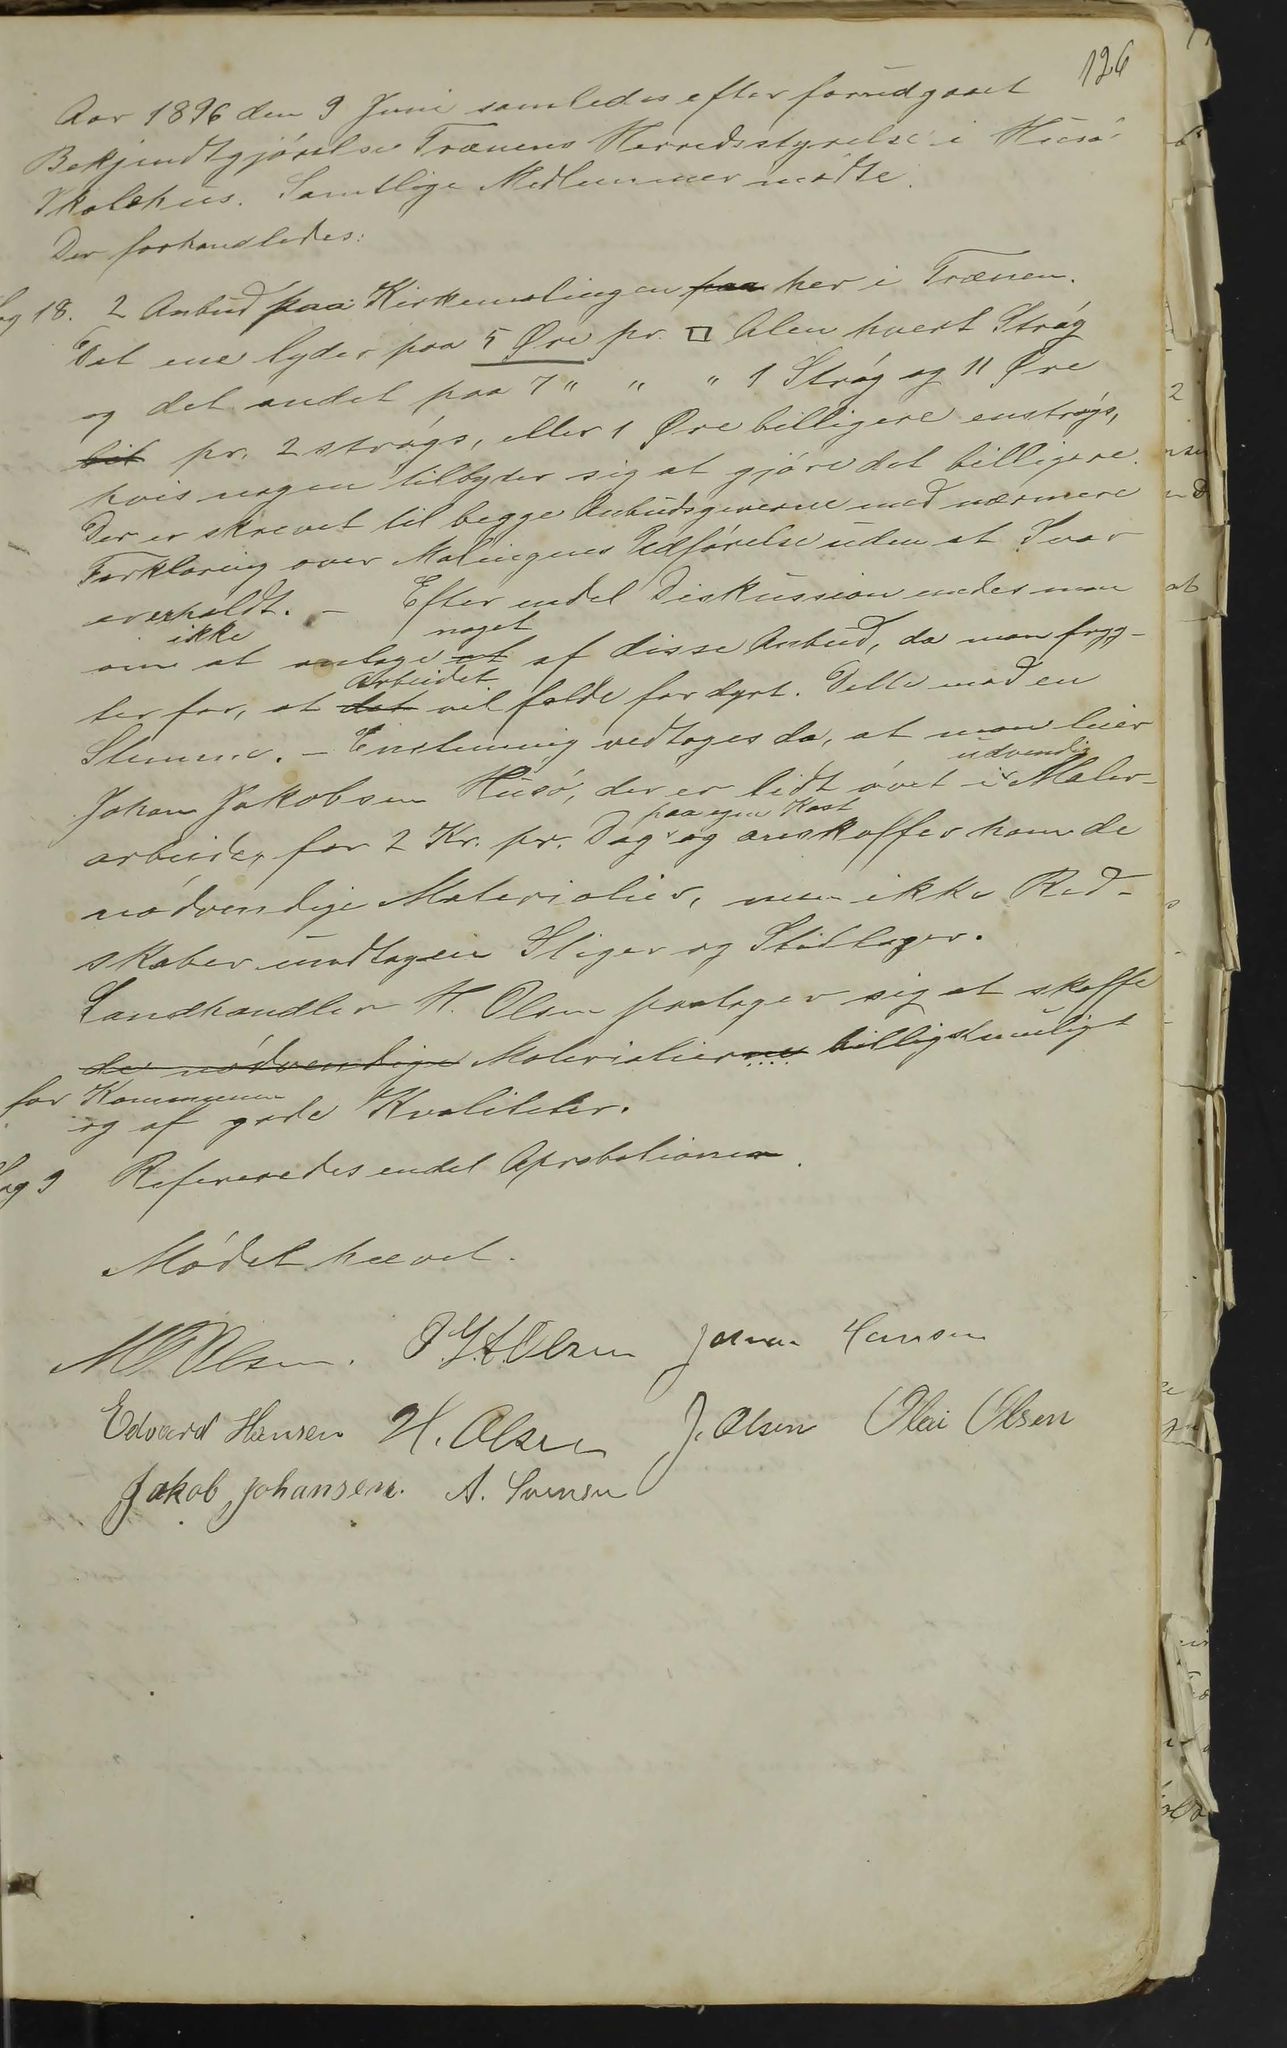 126
Aar 1896 den 9 Juni samledes efter forudgaaet
Bekjendtgjørelse Trænens Herredsstyrelse i Husø
Skolehus. Samtlige Medlemmer mødte.
Der forhandledes:
Sag 18. 2 Anbud paa Kirkemalingen paa her i Trænen.
Det ene lyder paa 5 Øre pr. □ Alen hvert Strøg
og det andet paa 7 " " " 1 Strøg og 11 Øre
pr. 2 strøgs, eller 1 Øre billigere enstrøgs,
hvis nogen tilbyder sig at gjøre det billigere.
Der er skrevet til begge Anbudsgiverne med nærmere
Forklaring over Malingens Udførelse uden at Svar
erholdt. - Efter endel Diskussion enedes man
ikke noget
om at antage af disse Anbud, da man fryg-
arbeidet
ter for, at det vil falde for dyrt. Dette mod en
Stemme. - Enstemmig vedtoges da, at man leier
udvendig
Johan Jakobsen Husø, der er lidt øvet i Maler-
paa egen Kost
arbeide, for 2 Kr. pr. Dag og anskaffer ham de
nødvendige Materialier, men ikke Red-
skaber undtagen Stiger og Stillager.
Landhandler H. Olsen paatager sig at skaffe
de nødvendige Materialierne billigst muligt
for Kommunen
og af gode Kvaliteter.
Sag 9 Refereredes endel Aprobationer.
Mødet hævet.
M Olsen. Olsen Johan Hansen
Edvard Hansen H. Olsen J. Olsen Olai Olsen
Jakob Johansen. A. Svensen